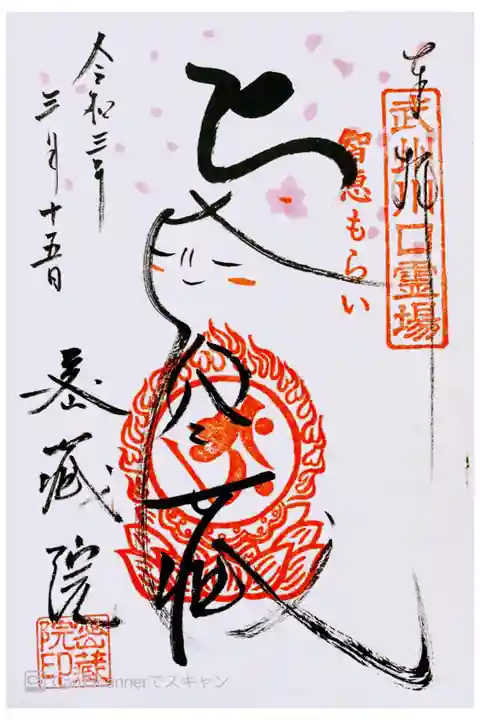 奉拝
武州川口霊場
智恵もらい
虚空蔵
令和三年
三月十五日
密蔵院
密蔵
院印
CamScannerでスキャン